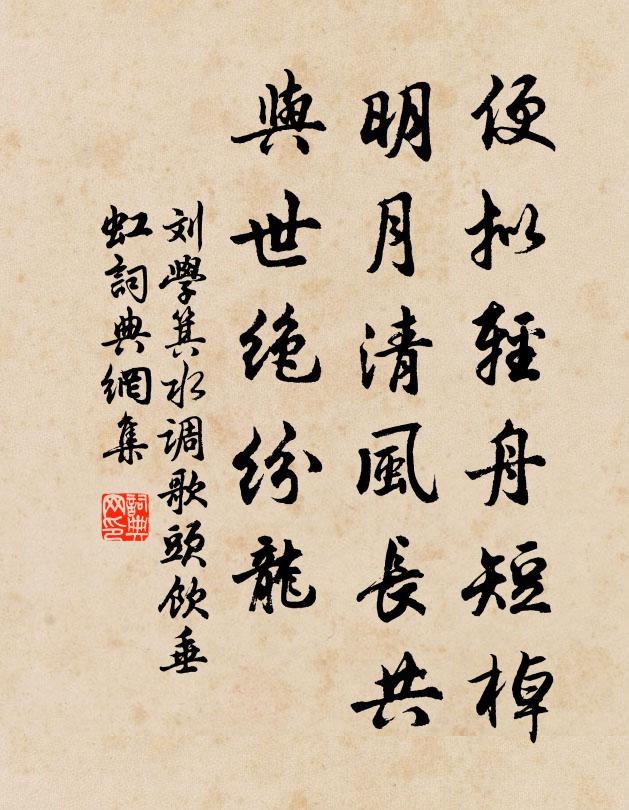 便拟輕舟短棹
明月清風長共
與世绝纷龍
刘學箕水调歌頭飲垂
虹詞典網集
詞典网印